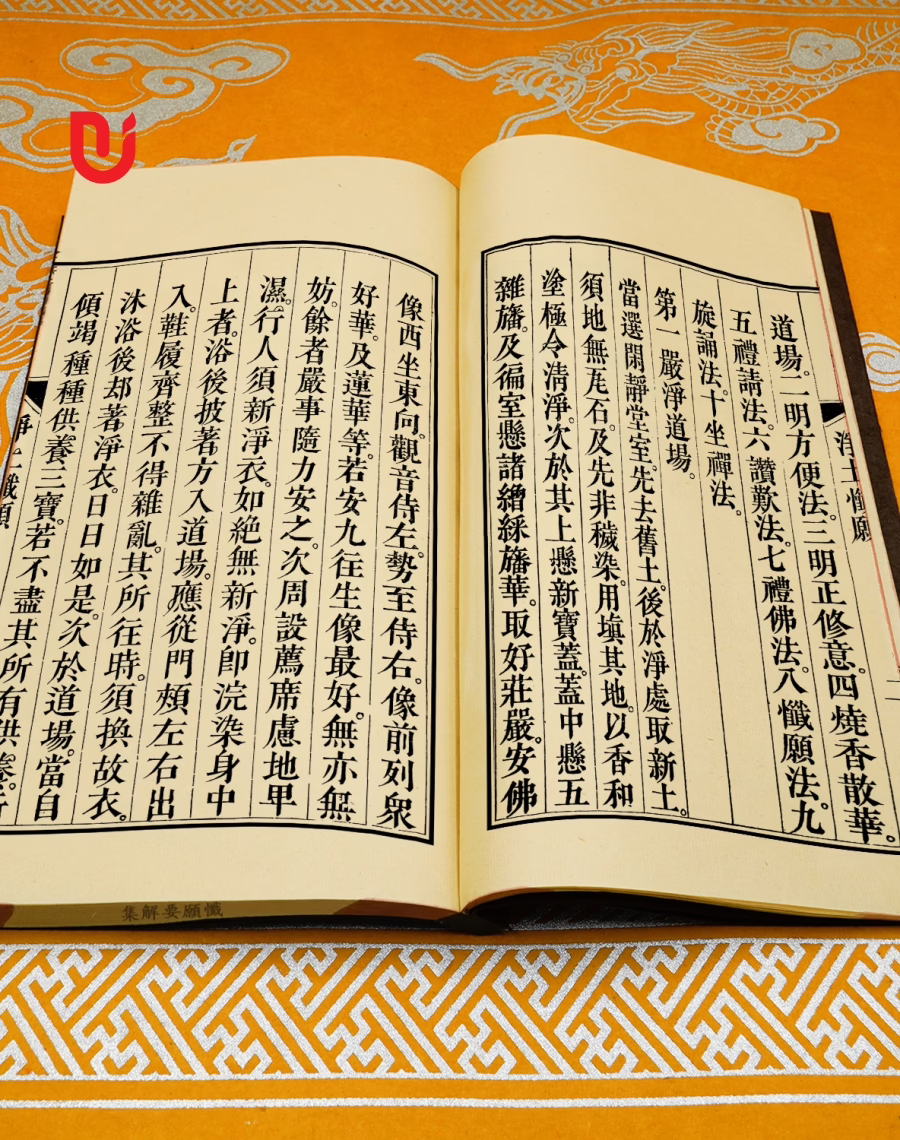 道場。二明方便法。三明正修意。四燒香散華。
五禮請法。六讚歎法。七禮佛法。八懺願法。九
旋誦法。十坐禪法。
第一嚴淨道場。
當選閑靜堂室。先去舊土。後於淨處取新土。
須地無瓦石。及先非穢染。用填其地。以香和
塗極令清淨。次於其上懸新寶蓋。蓋中懸五
雜旛。及徧室懸諸繒綵旛華。取好莊嚴。安佛
像西坐東向。觀音侍左。勢至侍右。像前列衆
好華。及蓮華等。若安九往生像最好。無亦無
妨。餘者嚴事隨力安之。次周設薦席。慮地卑
濕。行人須新淨衣。如絕無新淨。卽浣染身中
上者。浴後披著。方入道場。應從門頰左右出
入。鞋履齊整不得雜亂。其所往時。須換故衣。
沐浴後却著淨衣。日日如是。次於道場。當自
傾竭種種供養三寶。若不盡其所有供養。
淨土懺願
二
懺願要解集